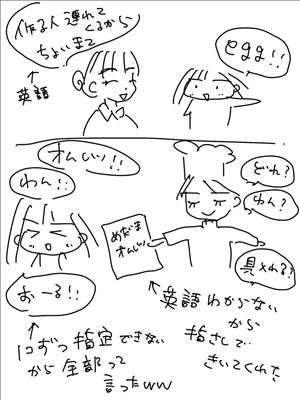 作る人連れて
くるから
ちょいまて
英語
egg!!
オムレツ!!
わん!!
おーる!!
めだま
オムレツ
どれ?
わん?
具入れる?
英語わからない
から
指さしで
きいてくれた
1こずつ指定できない
から全部って
言ったww